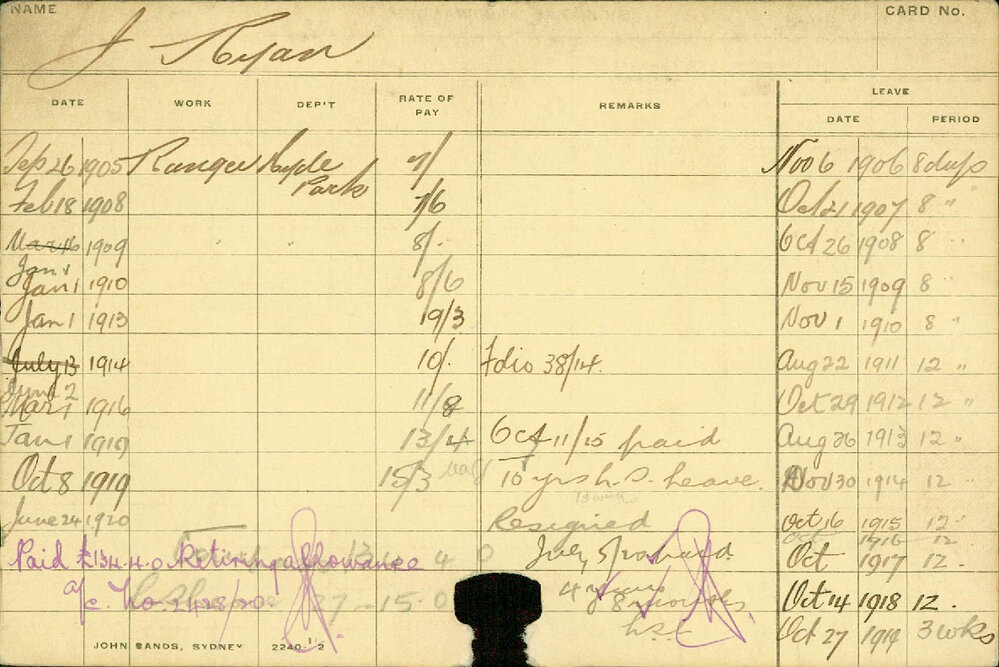 NAME CARD No.
J Ryan
DATE WORK DEP'T RATE OF PAY REMARKS LEAVE
DATE PERIOD
Sep 26 1905 Ranger Hyde Park 7/ Nov 6 1906 8 days
Feb 18 1908 7/6 Oct 21 1907 8 "
Mar 16 1909 8/- Oct 26 1908 8 "
Jan 1
Jan 1 1910 8/6 Nov 15 1909 8 "
Jan 1 1913 9/3 Nov 1 1910 8 "
July 13 1914 10/- Folio 38/14. Aug 22 1911 12 "
June 2
Mar 1 1916 11/8 Oct 29 1912 12 "
Jan 1 1919 13/4 Oct 11/15 paid Aug 26 1913 12 "
Oct 8 1919 15/3 10 yrs L.S. Leave. Nov 30 1914 12 "
June 24 1920 Resigned Oct 16 1915 12 "
Oct 1916 12
Paid £134.4.0 Retiring allowance July 5/20 paid Oct 1917 12 .
a/c. No. 2428/20 27-15-0 4 years 8 months Oct 14 1918 12 .
L.S.L Oct 27 1919 3 wks
JOHN SANDS, SYDNEY 2240-1/2